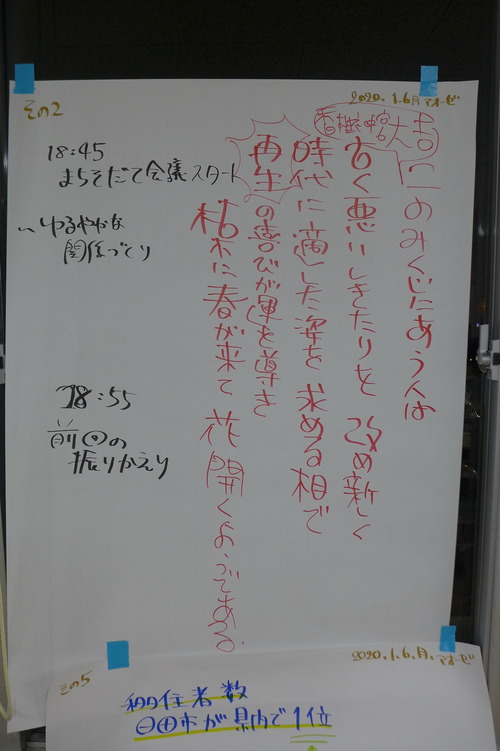 その2
2020.1.6.月 アオーゼ
香椎神宮 大吉
このみくじにあう人は
古く悪いしきたりを 改め新しく
時代に適した姿を 求める相で
再生の喜びが運を導き
枯木に春が来て 花開くようである。
18:45
まちそだて会議スタート
ゆるやかな
関係づくり
18:55
前回の
振りかえり
その5
2020.1.6.月.アオーゼ
移住者数
〇〇市が県内で1位